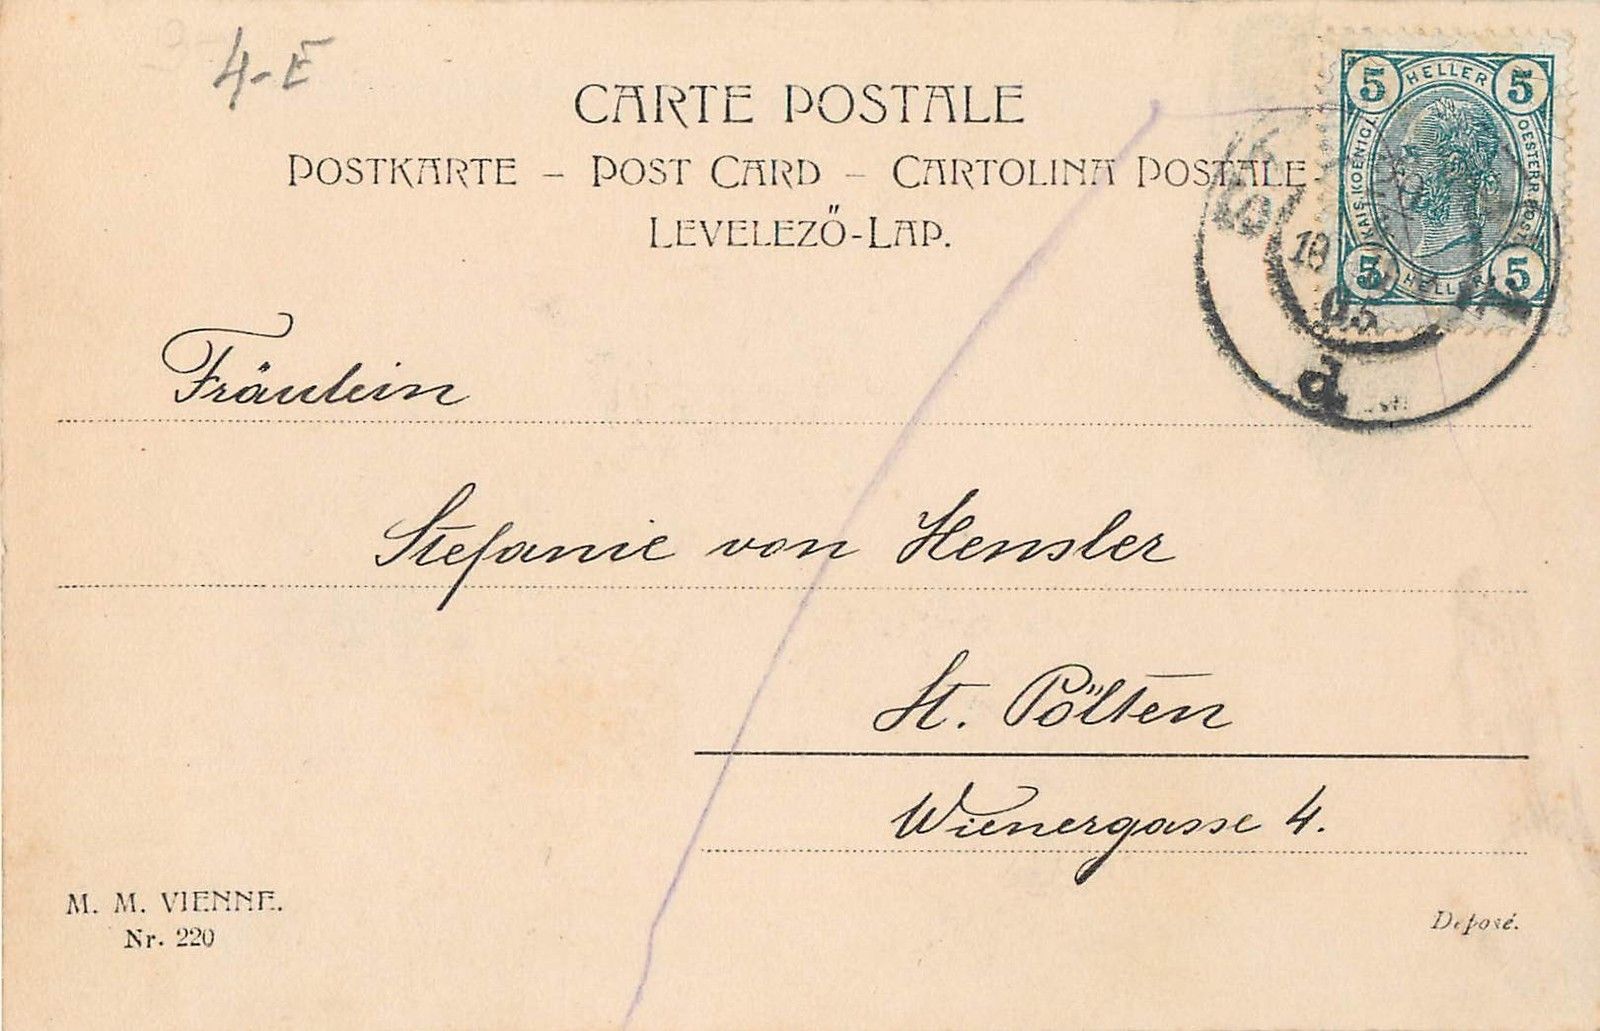 4-E
CARTE POSTALE
POSTKARTE – POST CARD – CARTOLINA POSTALE
LEVELEZŐ-LAP.
5 HELLER 5
KAIS. KOENIGL
OESTERR. POST
5 HELLER 5
18
05
d
Fräulein
Stefanie von Hensler
St. Pölten
Wienergasse 4.
M. M. VIENNE.
Nr. 220
Deposé.